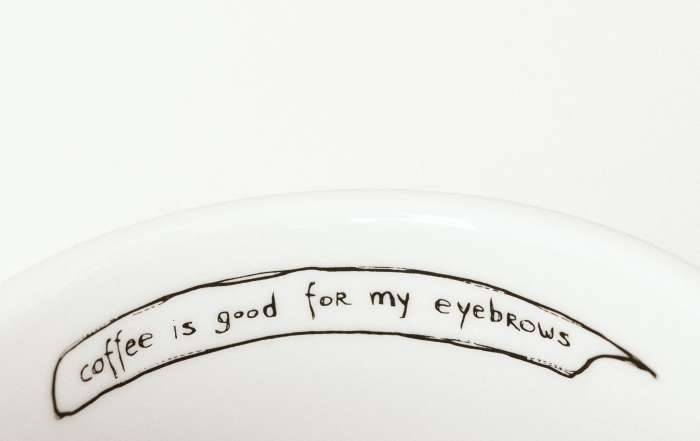 coffee is good foR my eyebRows